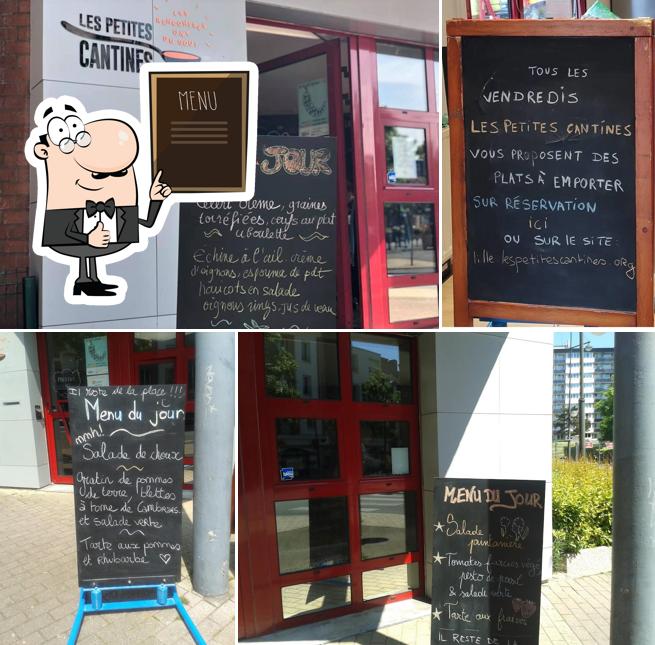 LES PETITES
CANTINES
LES
RENCONTRES
ONT
DU GOÛT
MENU
JOUR
crème, graines
torréfiées, oeufs au plat
ciboulette
Echine à l'ail, crème
d'oignons, espouma de pdt
haricots en salade
oignons rings, jus de veau
TOUS LES
VENDREDIS
LES PETITES CANTINES
VOUS PROPOSENT DES
PLATS À EMPORTER
SUR RÉSERVATION
ICI
OU SUR LE SITE:
lille.lespetitescantines.org
Il reste de la place !!!
Menu du jour
mmh!
Salade de choux
Gratin de pommes
de terre, blettes
à tome de Cambrésis.
et salade verte
Tarte aux pommes
et Rhubarbe
MENU DU JOUR
Salade
printanière
Tomates farcies végé
pesto de persil
& salade verte
Tarte aux fraises
IL RESTE DE LA